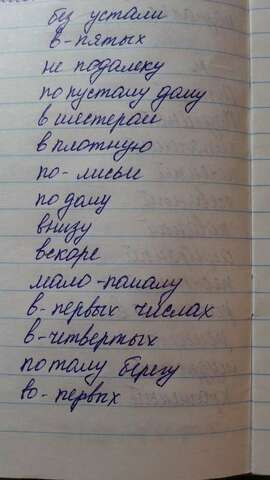 без устали
в-пятых
не подалеку
по пустому дому
в шестером
в плотную
по-лисьи
по дому
внизу
вскоре
мало-помалу
в-первых числах
в-четвертых
по тому берегу
во-первых